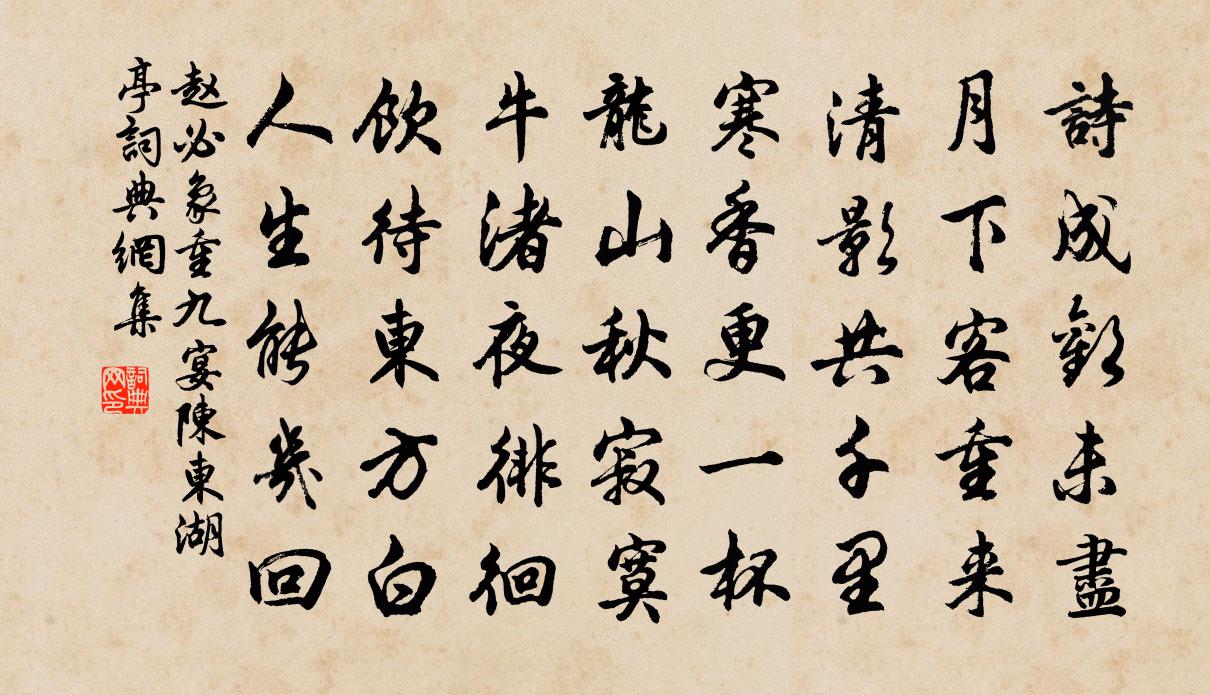 詩成歡未盡
月下客重来
清影共千里
寒香更一杯
龍山秋寂寞
牛渚夜徘徊
飲待東方白
人生能幾回
赵必象重九宴陳東湖
亭詞典網集
詞典
网印